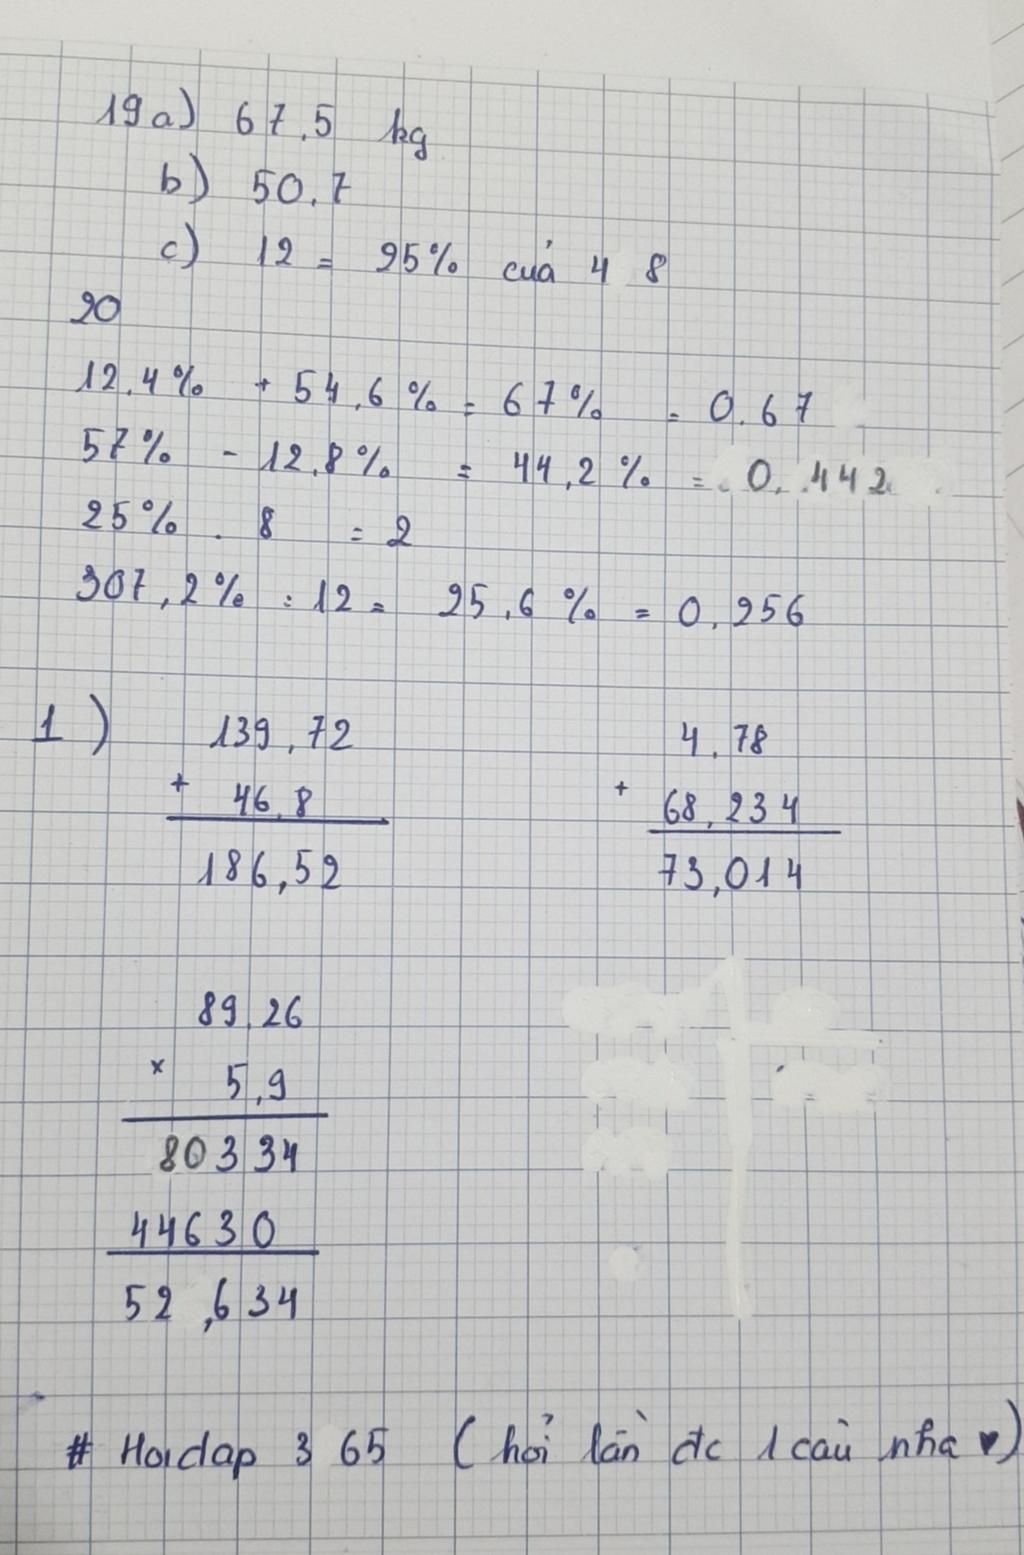 19 a) 67,5 kg
b) 50,7
c) 12 = 25% của 48
20
12,4% + 54,6% = 67% = 0,67
57% - 12,8% = 44,2% = 0,442
25% . 8 = 2
307,2% : 12 = 25,6% = 0,256
1) 139,72
+ 46,8
186,52
4,78
+ 68,234
73,014
89,26
x 5,9
80334
44630
52,634
# Hoidap 365 (hỏi lần đc 1 câu nha ♥)